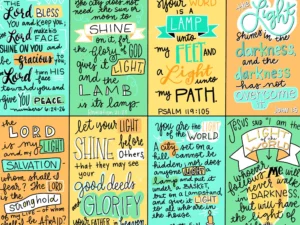 The
Lord BLESS
you and Keep you,
make his FACE
SHINE ON YOU and
be gracious to you
the Lord turn HIS
FACE
toward you and
give YOU PEACE.
numbers 6:24-26
The city does not
need the sun or
moon, to
SHINE
on it,
for the Glory of
GOD gives
it LIGHT
and the
LAMB
is its lamp.
YOUR WORD
IS a
LAMP
unto
my FEET
and a
Light
unto
MY PATH.
PSALM 119:105
the
Light
Shines in the
darkness,
and the
darkness
has not
overcome
it
the
LORD
is my
light
and my
SALVATION
whom shall I
fear? The LORD
is the
stronghold
of my life - of whom
shall I be AFRAID?
let your LIGHT
SHINE before
Others,
that they may see
your good
deeds
and
GLORIFY
your FATHER in heaven
You are the LIGHT
of the WORLD.
A city set on a
hill cannot be
hidden; nor does
anyone LIGHT a
Lamp and put it
under a BASKET,
but on a Lampstand
and it give LIGHT
to all who are in
the house.
Jesus said "I am the
LIGHT
of the
WORLD
whoever
follows ME will
never walk in
DARKNESS
but will have
the light of